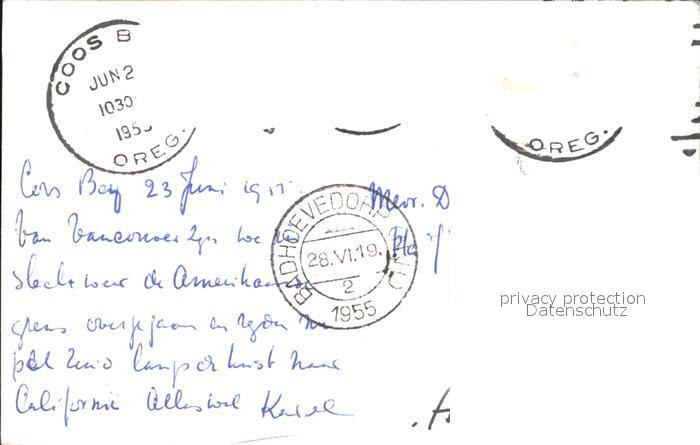 COOS B
JUN 2
1030
195
OREG.
OREG.
Coos Bay 23 Juni 1955
Mevr. D
van Vancouver zijn we
slecht weer de Amerikaanse
grens overgegaan en
langs de kust naar
Californie. Alles wel Karel
BADHOEVEDORP
28.VI.19.
2
1955
privacy protection
Datenschutz